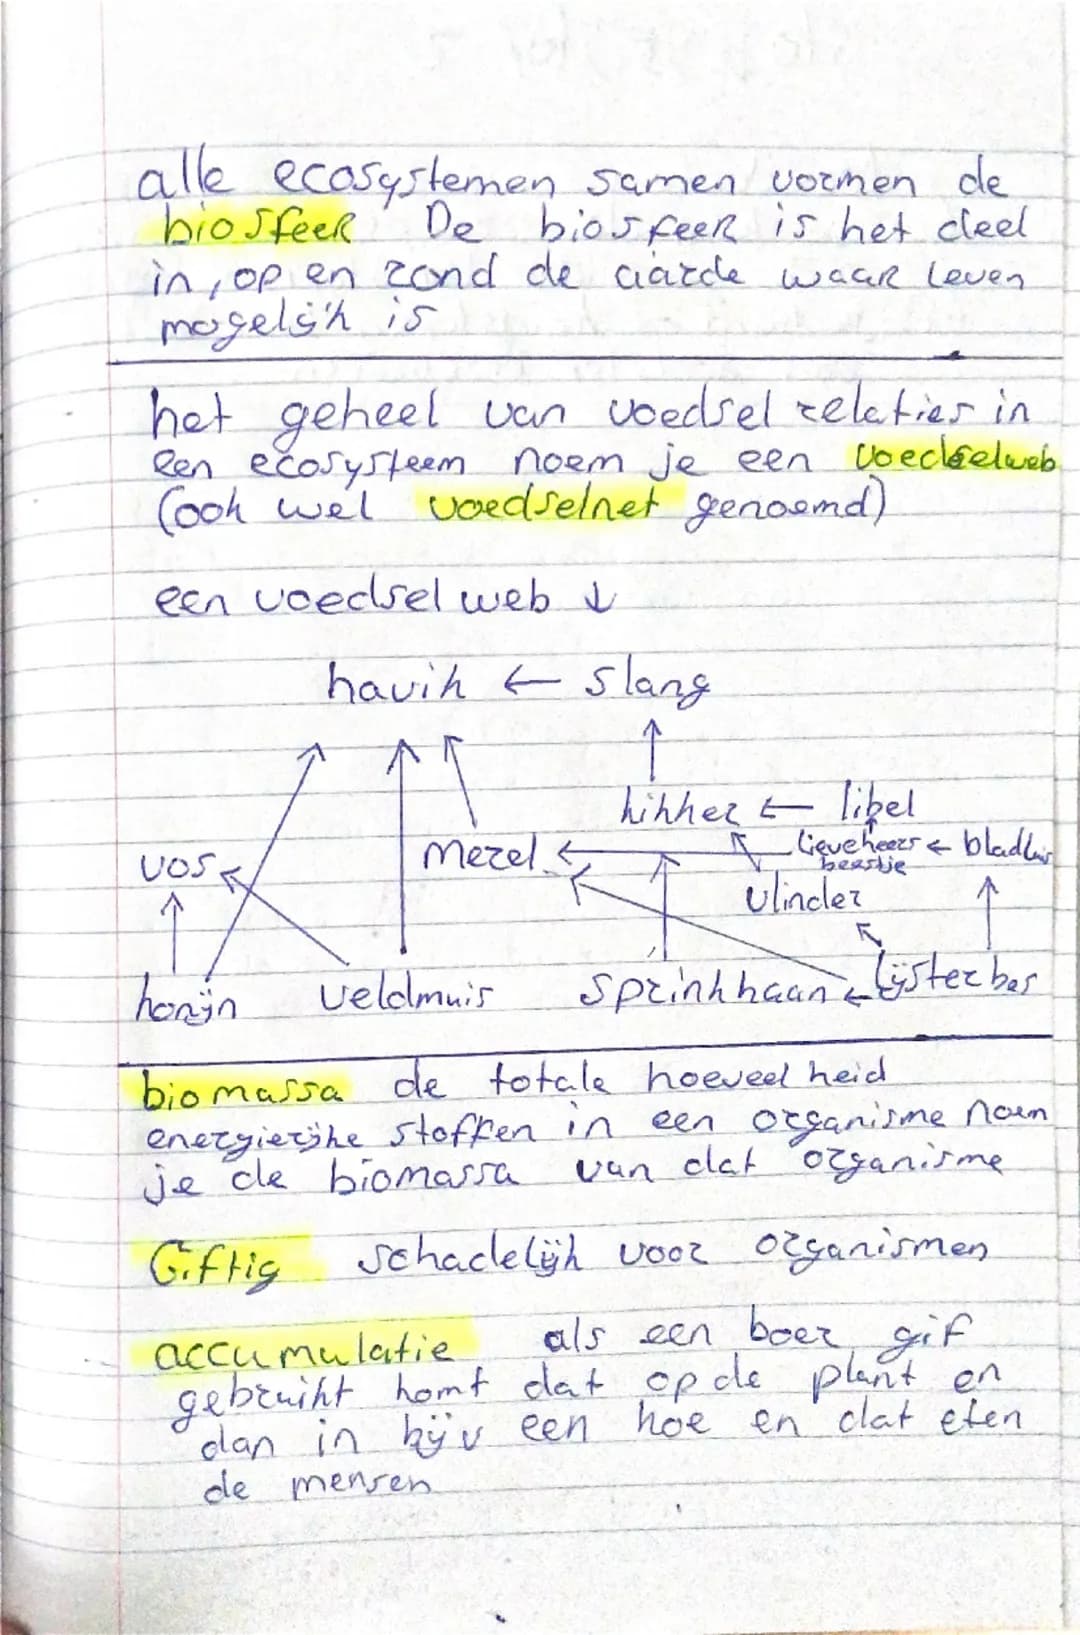 alle ecosystemen samen vormen de
biosfeer De biosfeer is het deel
in, op en rond de aarde waar leven
mogelijk is
het geheel van voedsel relaties in
een ecosysteem noem je een voedselweb
(ook wel voedselnet genoemd)
een voedsel web ↓
havik ← slang
kikker ← libel
vos merel ← lieveheers ← bladluis
beestje
vlinder
konijn veldmuis sprinkhaan ← lijsterbes
biomassa de totale hoeveel heid
energierijke stoffen in een organisme noem
je de biomassa van dat organisme
Giftig schadelijk voor organismen
accumulatie als een boer gif
gebruikt komt dat op de plant en
dan in bijv een koe en dat eten
de mensen